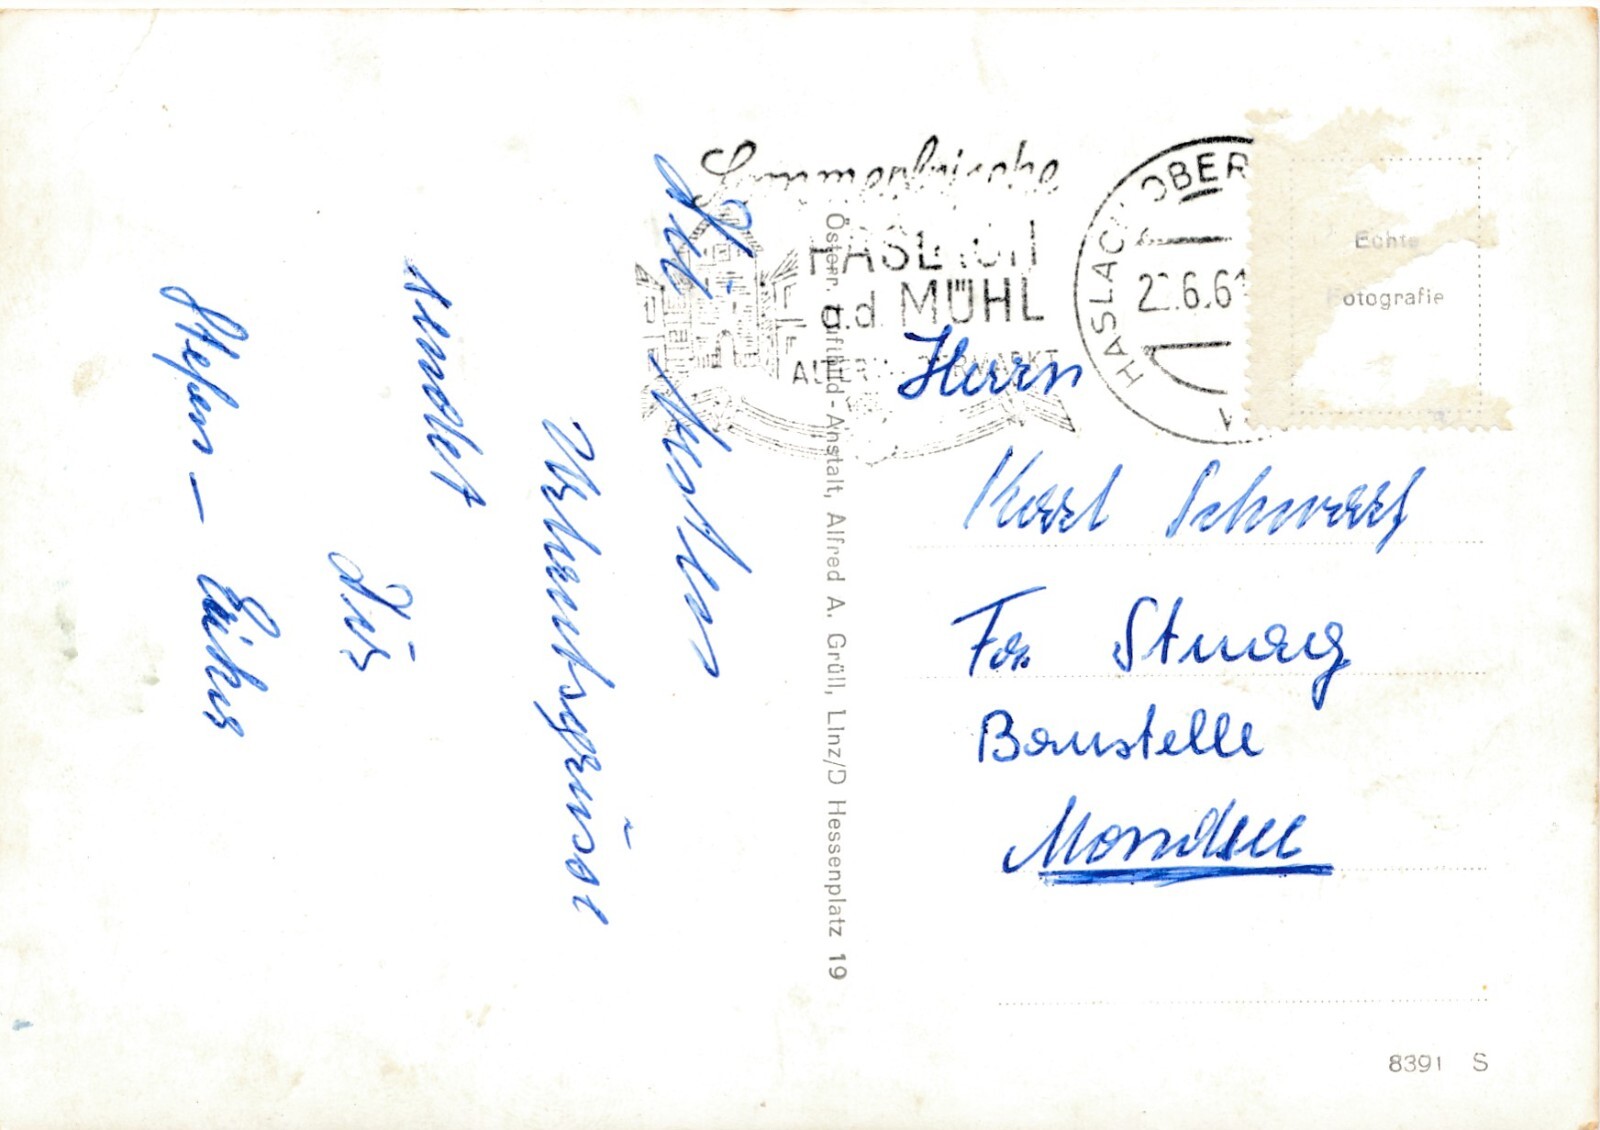 Die besten
Urlaubsgrüsse
sendet
Dir
Stefan - Erika
Sommerfrische
HASLACH
a.d. MÜHL
HASLACH OBER
6.61
Echte
Fotografie
Herrn
Karl Schwarz
Fa. Stuag
Baustelle
Mondsee
Österr. Luftbild-Anstalt, Alfred A. Grüll, Linz/D Hessenplatz 19
8391 S